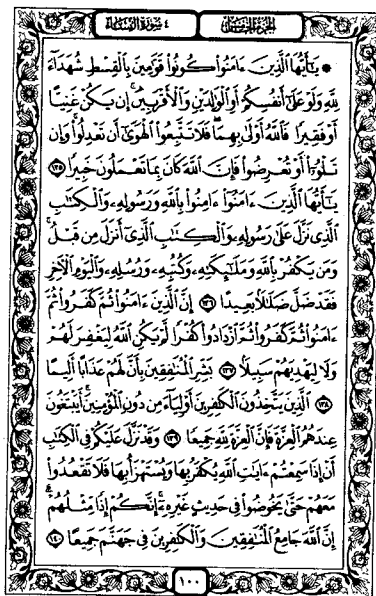 الجزء الخامس ٤ سورة النساء
* يَٰٓأَيُّهَا ٱلَّذِينَ ءَامَنُوا۟ كُونُوا۟ قَوَّٰمِينَ بِٱلْقِسْطِ شُهَدَآءَ
لِلَّهِ وَلَوْ عَلَىٰٓ أَنفُسِكُمْ أَوِ ٱلْوَٰلِدَيْنِ وَٱلْأَقْرَبِينَ ۚ إِن يَكُنْ غَنِيًّا
أَوْ فَقِيرًا فَٱللَّهُ أَوْلَىٰ بِهِمَا ۖ فَلَا تَتَّبِعُوا۟ ٱلْهَوَىٰٓ أَن تَعْدِلُوا۟ ۚ وَإِن
تَلْوُۥٓا۟ أَوْ تُعْرِضُوا۟ فَإِنَّ ٱللَّهَ كَانَ بِمَا تَعْمَلُونَ خَبِيرًا ١٣٥
يَٰٓأَيُّهَا ٱلَّذِينَ ءَامَنُوٓا۟ ءَامِنُوا۟ بِٱللَّهِ وَرَسُولِهِۦ وَٱلْكِتَٰبِ
ٱلَّذِى نَزَّلَ عَلَىٰ رَسُولِهِۦ وَٱلْكِتَٰبِ ٱلَّذِىٓ أَنزَلَ مِن قَبْلُ ۚ
وَمَن يَكْفُرْ بِٱللَّهِ وَمَلَٰٓئِكَتِهِۦ وَكُتُبِهِۦ وَرُسُلِهِۦ وَٱلْيَوْمِ ٱلْءَاخِرِ
فَقَدْ ضَلَّ ضَلَٰلًۢا بَعِيدًا ١٣٦ إِنَّ ٱلَّذِينَ ءَامَنُوا۟ ثُمَّ كَفَرُوا۟ ثُمَّ
ءَامَنُوا۟ ثُمَّ كَفَرُوا۟ ثُمَّ ٱزْدَادُوا۟ كُفْرًا لَّمْ يَكُنِ ٱللَّهُ لِيَغْفِرَ لَهُمْ
وَلَا لِيَهْدِيَهُمْ سَبِيلًۢا ١٣٧ بَشِّرِ ٱلْمُنَٰفِقِينَ بِأَنَّ لَهُمْ عَذَابًا أَلِيمًا
١٣٨ ٱلَّذِينَ يَتَّخِذُونَ ٱلْكَٰفِرِينَ أَوْلِيَآءَ مِن دُونِ ٱلْمُؤْمِنِينَ ۚ أَيَبْتَغُونَ
عِندَهُمُ ٱلْعِزَّةَ فَإِنَّ ٱلْعِزَّةَ لِلَّهِ جَمِيعًا ١٣٩ وَقَدْ نَزَّلَ عَلَيْكُمْ فِى ٱلْكِتَٰبِ
أَنْ إِذَا سَمِعْتُمْ ءَايَٰتِ ٱللَّهِ يُكْفَرُ بِهَا وَيُسْتَهْزَأُ بِهَا فَلَا تَقْعُدُوا۟
مَعَهُمْ حَتَّىٰ يَخُوضُوا۟ فِى حَدِيثٍ غَيْرِهِۦٓ ۚ إِنَّكُمْ إِذًا مِّثْلُهُمْ ۗ
إِنَّ ٱللَّهَ جَامِعُ ٱلْمُنَٰفِقِينَ وَٱلْكَٰفِرِينَ فِى جَهَنَّمَ جَمِيعًا ١٤٠
١٠٠